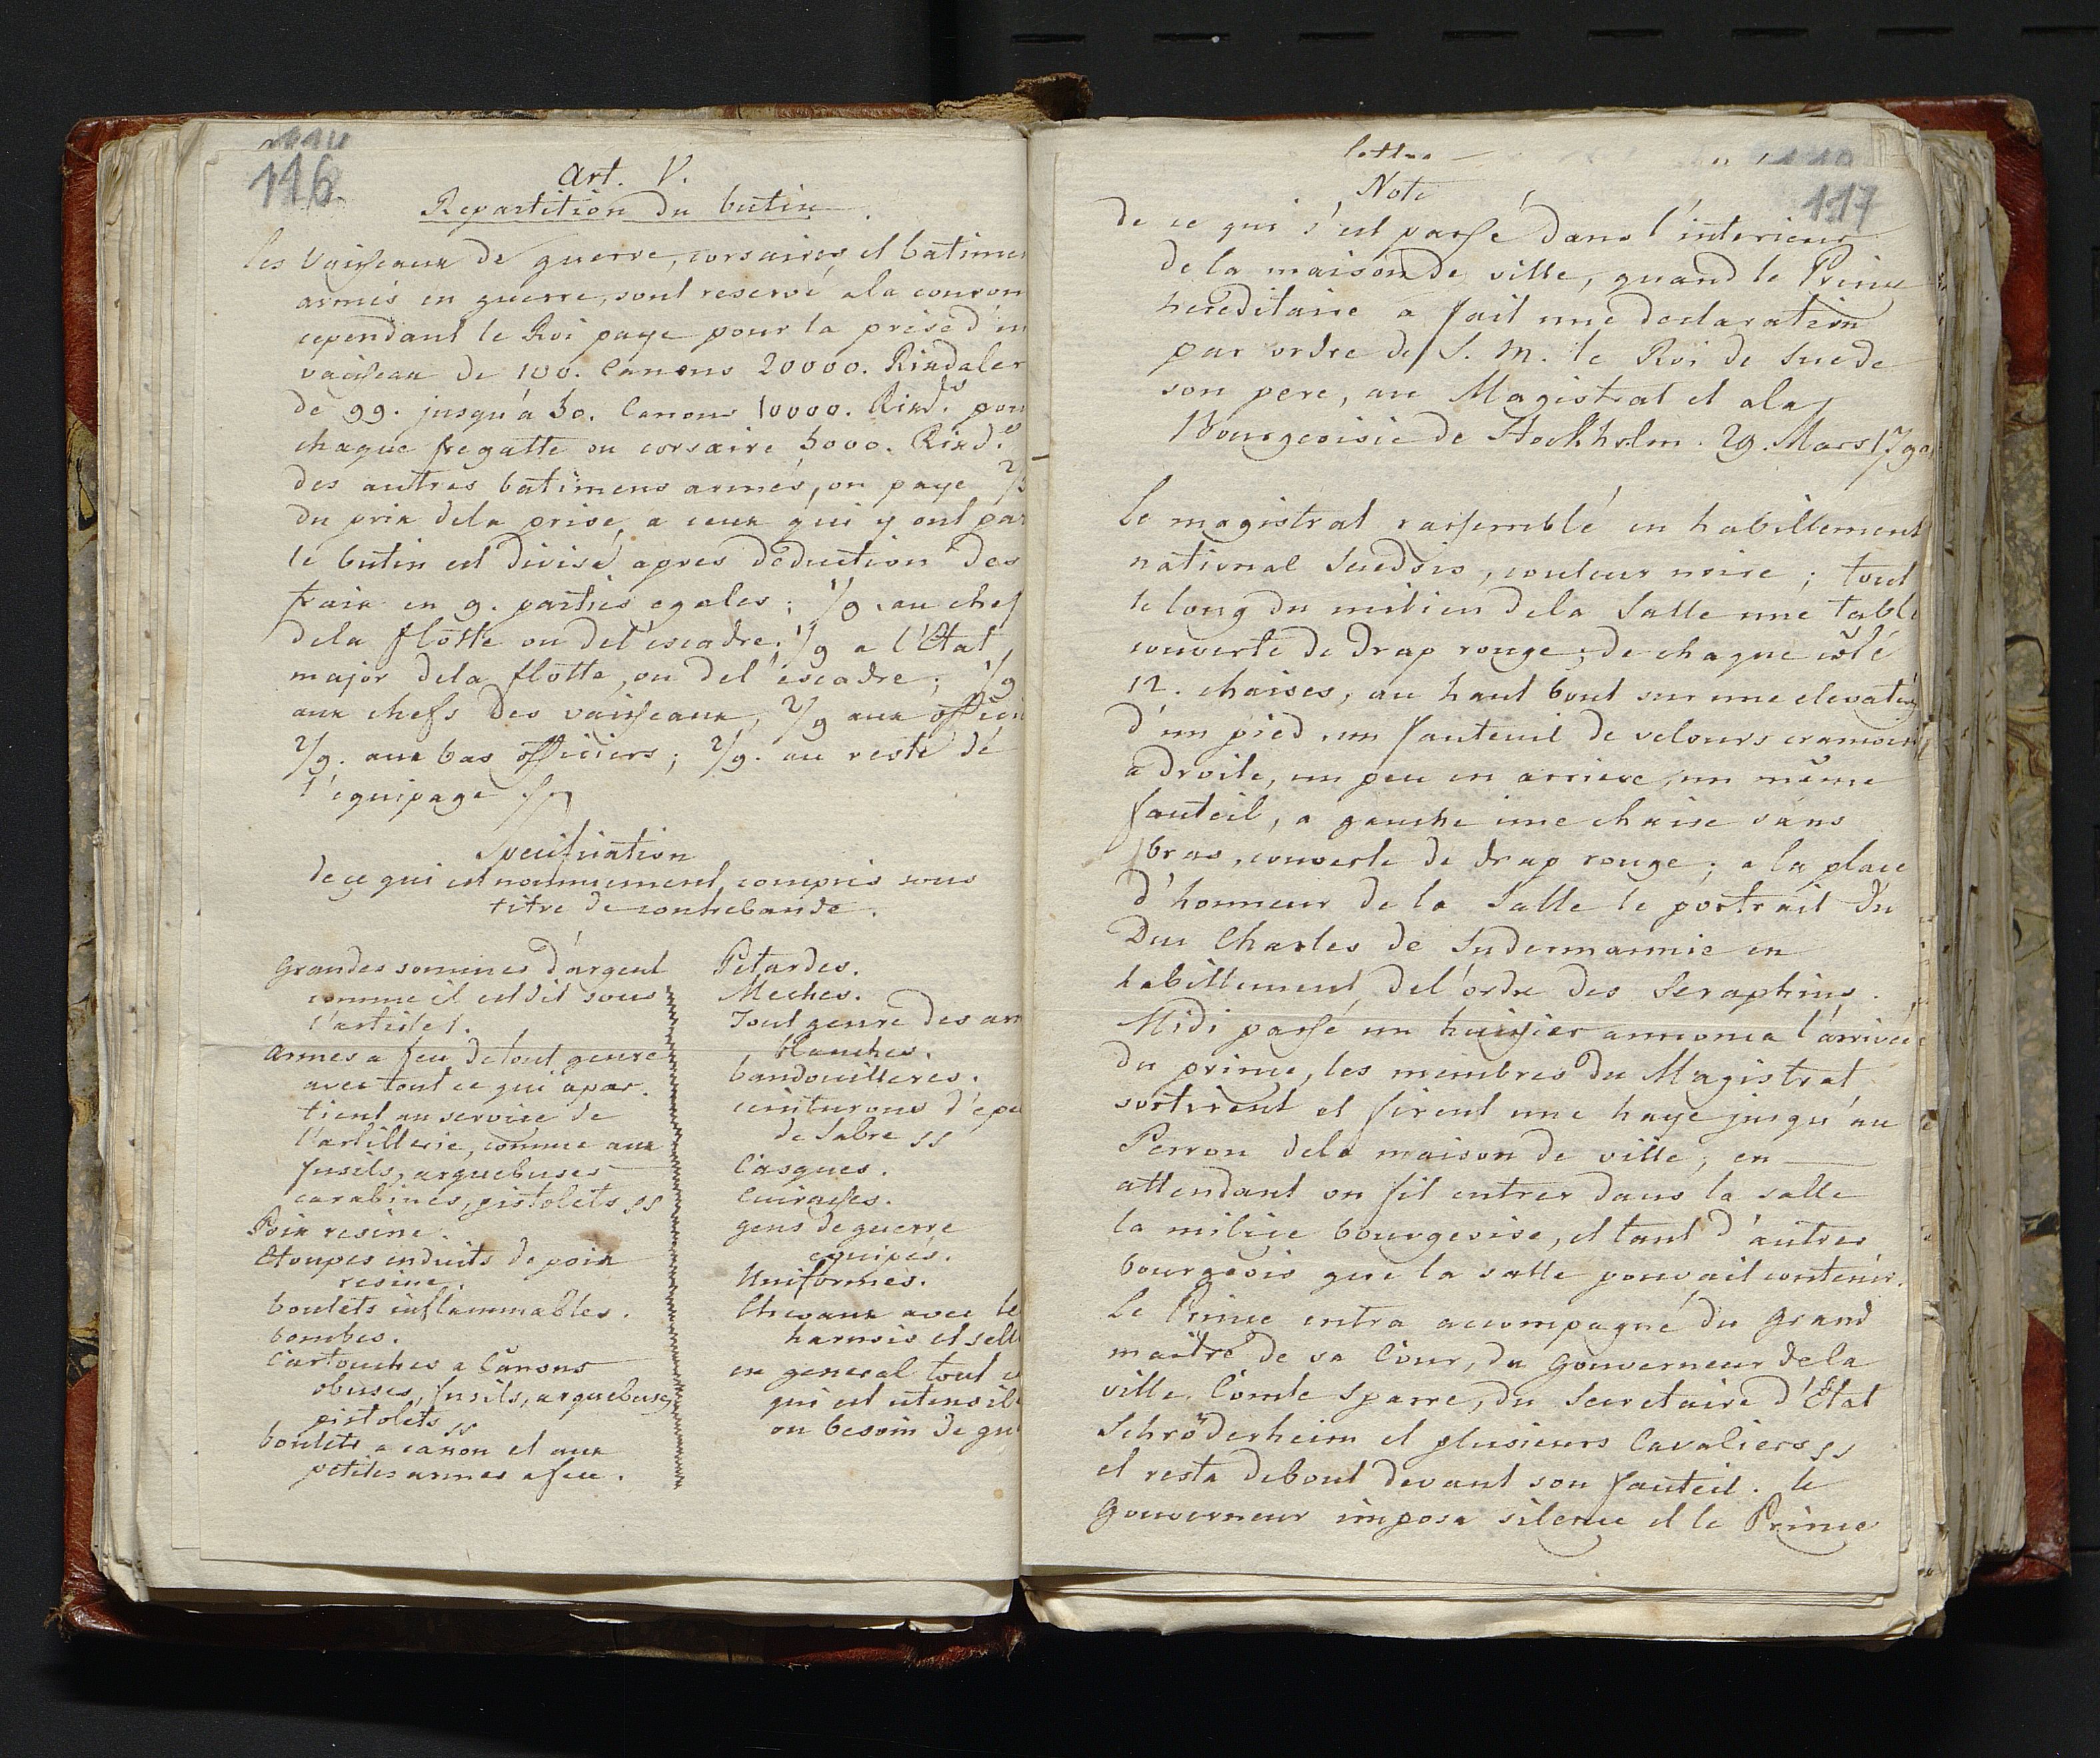 116
Art. V.
Repartition du butin.
les Vaisseaux de guerre, corsaires, et batimen
armés en guerre, sont reservé a la couron
cependant le Roi paye pour la prise d'un
vaisseau de 100. Canons 20000. Rixdaler
de 99. jusqu'á 50. Canons 10000. Rixd.s pour
chaque fregatte ou corsaire 5000. Rixd.s
des autres batimens armés, on paye 2/3
du prix dela prise, a ceux qui y ont par
le butin est divisé apres déduction des
fraix en 9. parties egales; 1/9. au chef
dela flotte ou del'escadre; 1/9 a l'Etat
major dela flotte, ou del'escadre; 1/9
aux chefs des vaisseaux, 2/9 aux officie
2/9. aux bas officiers; 2/9. au reste de
l'équipage
Specification
de ce qui est nommement compris sous
titre de contrebande.
Grandes sommes d'argent
comme il est dit sous
l'article 1.
Armes a feu de tout genre
avec tout ce qui apar.
tient au service de
l'artillerie, comme aux
fusils, arquebuses
carabines, pistolets ss
Poix resine.
Etoupes enduits de poix
resine.
boulets inflammables.
bombes.
Cartouches a Canons
obuses, fusils, arquebuses
pistolets ss
boulets a canon et aux
petites armes a feu.
Petardes.
Meches.
Tout genre des arm
blanches.
bandouilleres.
ceinturons d'epe
de Sabre ss
Casques.
Cuirasses.
gens de guerre
equipés.
Uniformes.
Chevaux avec le
harnois et selle
en general tout c
qui est utensile
ou besoin de gu
lettre
117
Note
de ce qui s'est passé dans l'interieur
de la maison de ville, quand le Prince
hereditaire a fait une declaration
par ordre de S. M. le Roi de Suede
son pere, au Magistrat et a la
Bourgeoisie de Stockholm. 29. Mars 1790
Le magistrat rassemblé en habillement
national Suedois, couleur noire; tout
le long du milieu dela Salle une table
couverte de drap rouge; de chaque côté
12. chaises, au haut bout sur une elevation
d'un pied, un fauteuil de velours cramoisi
a droite, un peu en arriere, un même
fauteil, a gauche une chaise sans
bras, couverte de drap rouge; a la place
d'honneur de la Salle le portrait du
Duc Charles de Sudermannie en
habillement del'ordre des Seraphins.
Midi passé un huissier annonca l'arrivée
du prince, les membres du Magistrat
sortirent et firent une haye jusqu'au
Perron dela maison de ville, en
attendant on fit entrer dans la salle
la milice bourgeoise, et tant d'autres
bourgeois que la salle pouvait contenir.
Le Prince entra accompagné du Grand
maître de sa Cour, du Gouverneur dela
ville, Comte Sparre, du Secretaire d'Etat
Schröderheim et plusieurs Cavaliers ss
et resta debout devant son fauteil. le
Gouverneur imposa silence et le Prince